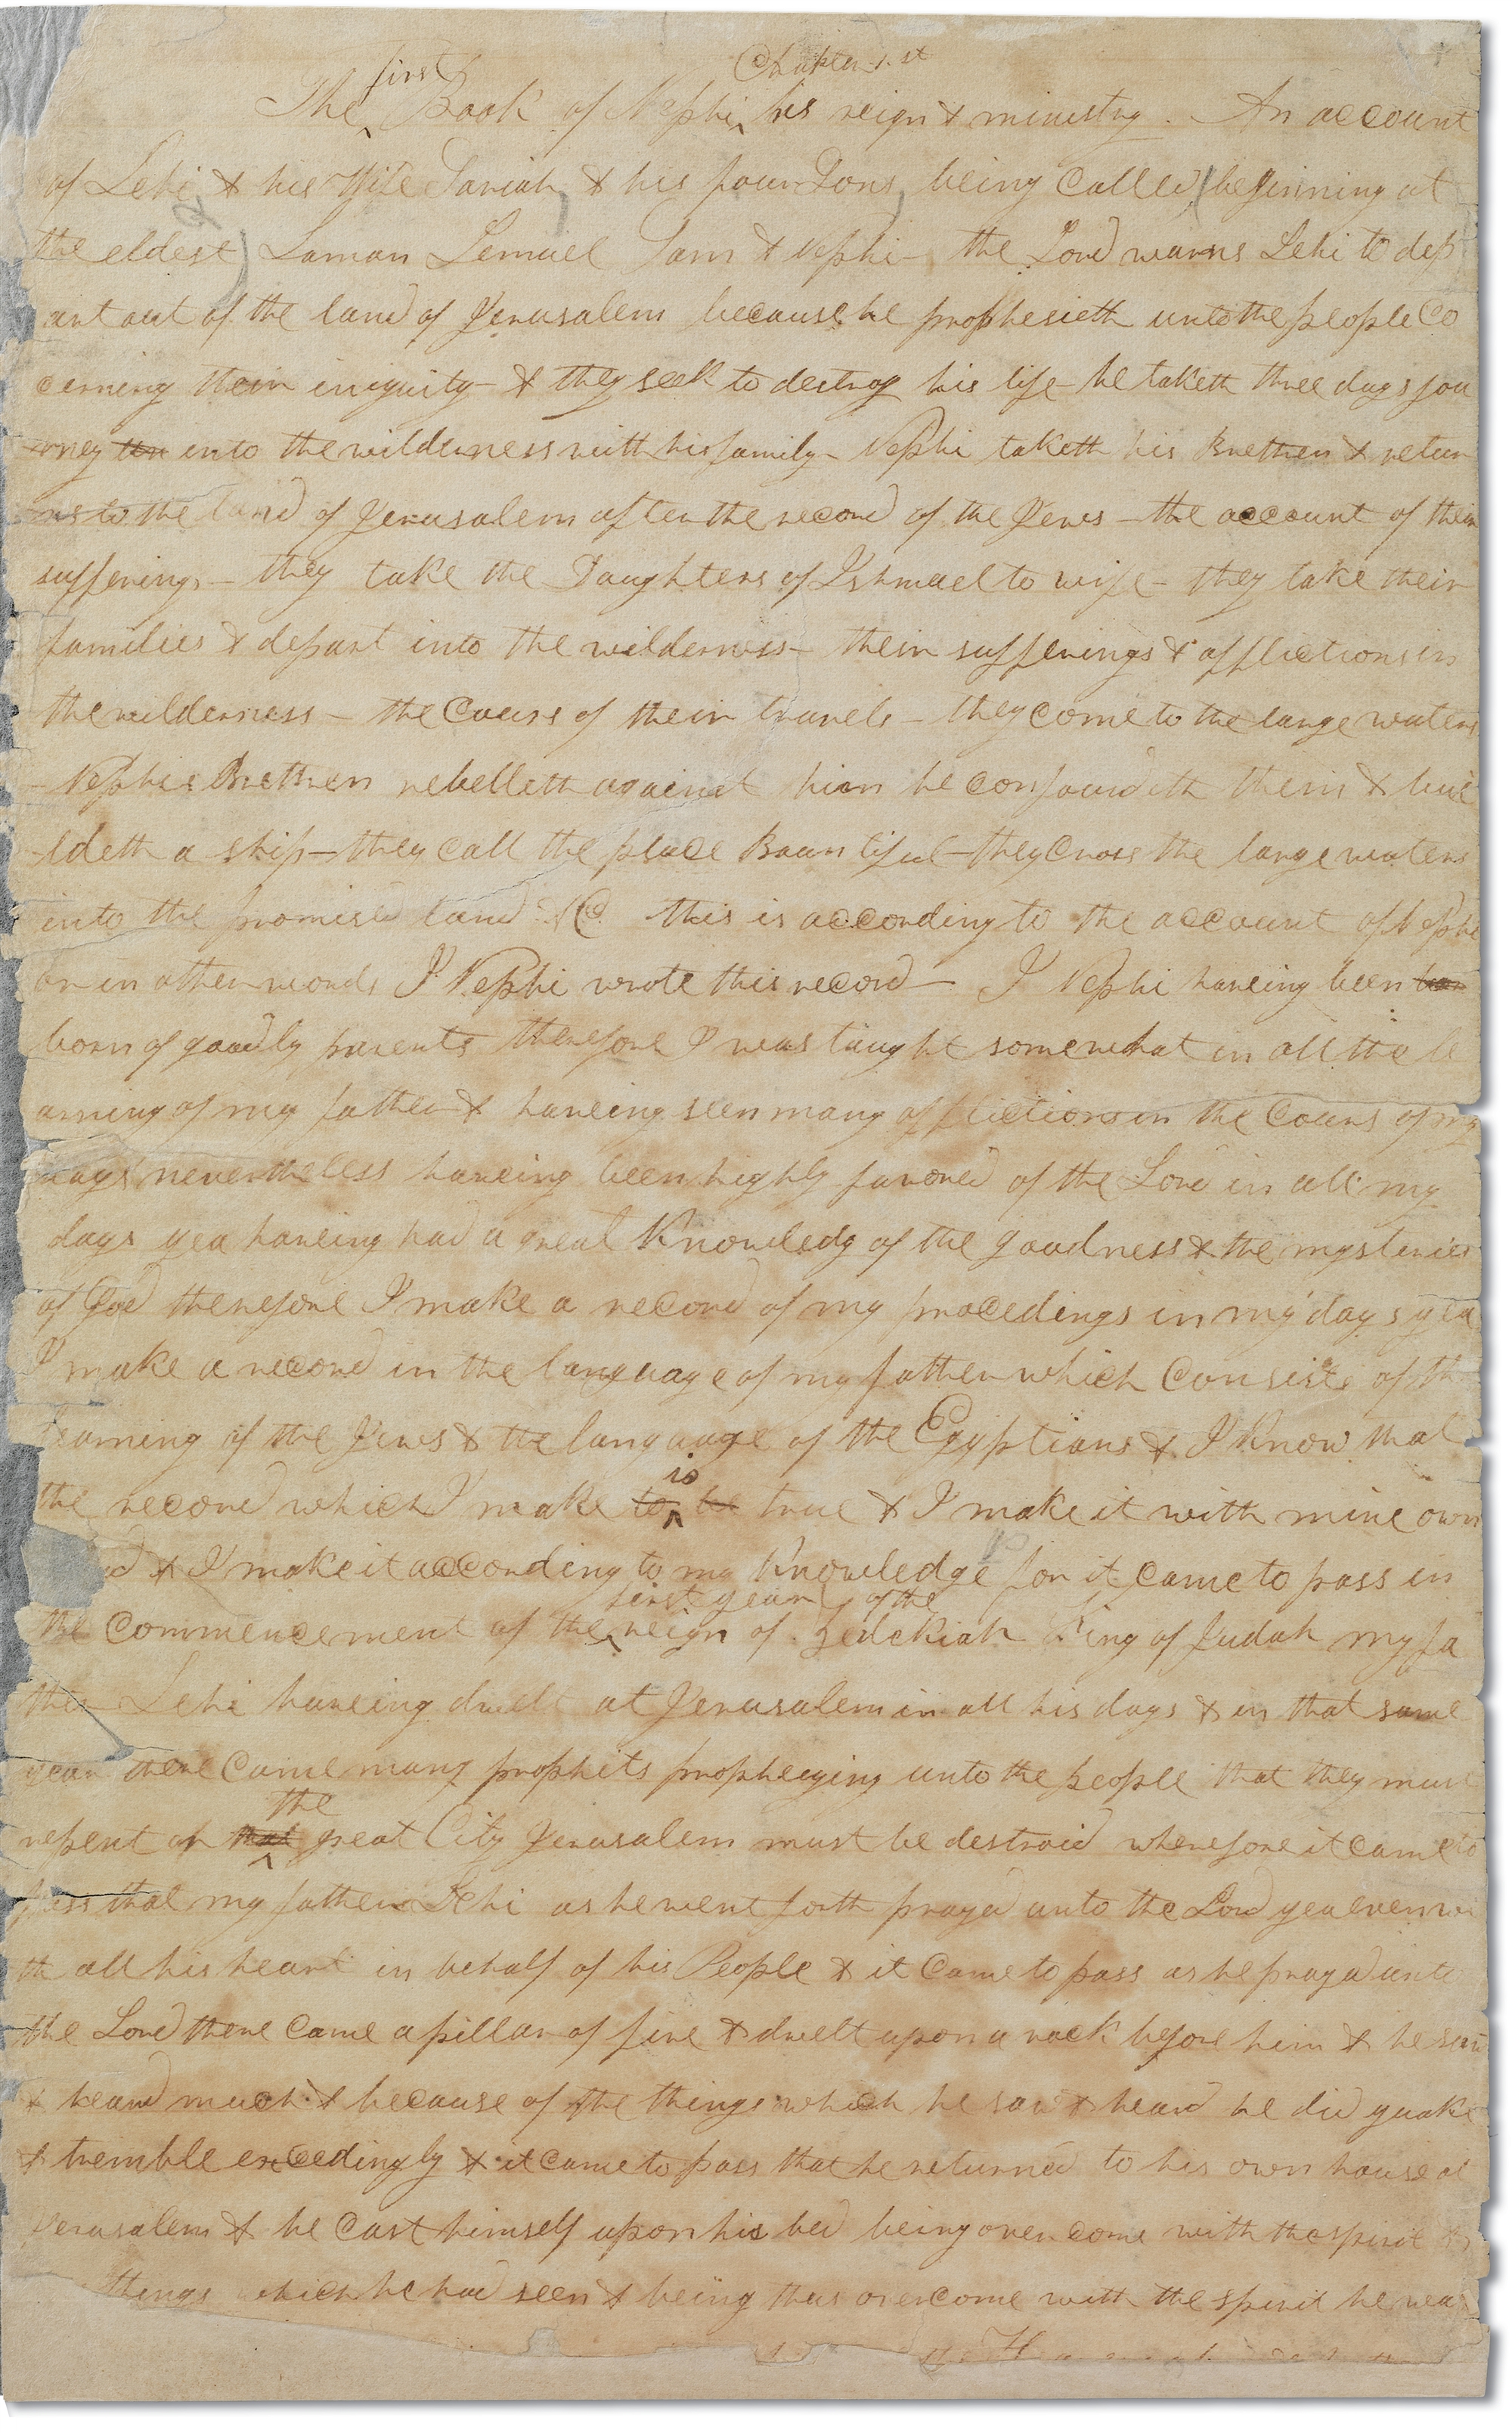 Chapter 1.st
first
The ‸ Book of Nephi ‸ his reign & ministry. An account
of Lehi & his Wife Sariah & his four Sons being Called (beginning at
the eldest) Laman Lemuel Sam & Nephi— the Lord warns Lehi to dep
art out of the land of Jerusalem because he prophesieth unto the people Co
cerning their iniquity— & they seek to destroy his life— he taketh three days jou
rney into the wilderness with his family— Nephi taketh his Brethren & retur
ns to the land of Jerusalem after the record of the Jews— the account of their
sufferings— they take the Daughters of Ishmael to wife— they take their
families & depart into the wilderness— their sufferings & afflictions in
the wilderness— the Cours of their travels— they come to the large waters
— Nephis Brethren rebelleth against him he confoundeth them & bui
ldeth a ship— they call the place Bountiful— they Cross the large waters
into the promised land &C. this is according to the account of Nephi
or in other words I Nephi wrote this record— I Nephi haveing been
born of goodly parents therefore I was taught somewhat in all the le
arning of my father & haveing seen many afflictions in the Cours of my
days nevertheless haveing been highly favored of the Lord in all my
days yea haveing had a great Knowledg of the goodness & the mysteries
of God therefore I make a record of my procedings in my days yea
I make a record in the language of my father which Consists of the
learning of the Jews & the language of the Egyptians & I Know that
is
the record which I make to ‸ be true & I make it with mine own
& I make it according to my Knowledge for it came to pass in
first year of the
the commencement of the ‸ reign of Zedekiah King of Judah my fa
ther Lehi haveing dwelt at Jerusalem in all his days & in that same
year there Came many prophets prophesying unto the people that they must
the
repent or that ‸ great City Jerusalem must be destroid wherefore it came to
pass that my father Lehi as he went forth prayed unto the Lord yea even wi
th all his heart in behalf of his People & it Came to pass as he prayed unto
the Lord there Came a pillar of fire & dwelt upon a rock before him & he saw
& heard much & because of the things which he saw & heard he did quake
& tremble exceedingly & it came to pass that he returned to his own house at
Jerusalem & he Cast himself upon his bed being overcome with the spirit &
things which he had seen & being thus overcome with the spirit he was